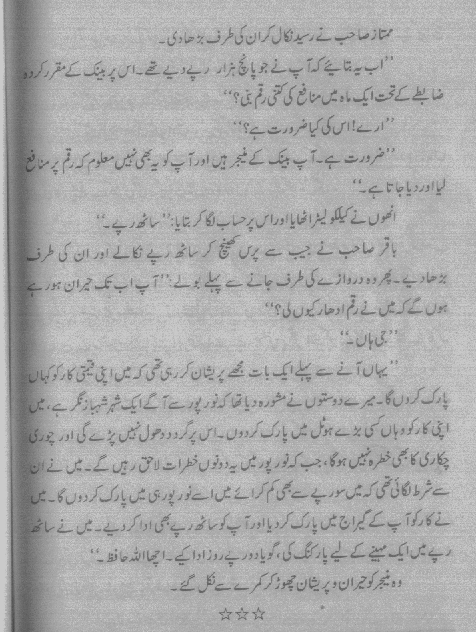 ممتاز صاحب نے رسید نکال کر ان کی طرف بڑھا دی۔
''اب یہ بتائیے کہ آپ نے جو پانچ ہزار رپے دیے تھے۔ اس پر بینک کے مقرر کردہ
ضابطے کے تحت ایک ماہ میں منافع کی کتنی رقم بنی؟''
''ارے! اس کی کیا ضرورت ہے؟''
''ضرورت ہے۔ آپ بینک کے منیجر ہیں اور آپ کو یہ بھی نہیں معلوم کہ رقم پر منافع
لیا اور دیا جاتا ہے۔''
انھوں نے کیلکولیٹر اٹھایا اور اس پر حساب لگا کر بتایا: ''ساٹھ رپے۔''
باقر صاحب نے جیب سے پرس کھینچ کر ساٹھ رپے نکالے اور ان کی طرف
بڑھا دیے۔ پھر وہ دروازے کی طرف جانے سے پہلے بولے: ''آپ اب تک حیران ہو رہے
ہوں گے کہ میں نے رقم ادھار کیوں لی؟''
''جی ہاں۔''
''یہاں آنے سے پہلے ایک بات مجھے پریشان کر رہی تھی کہ میں اپنی قیمتی کار کو کہاں
پارک کروں گا۔ میرے دوستوں نے مشورہ دیا تھا کہ نور پور سے آگے ایک شہر شہباز نگر ہے، میں
اپنی کار کو وہاں کسی بڑے ہوٹل میں پارک کر دوں۔ اس پر گرد و دھول نہیں پڑے گی اور چوری
چکاری کا بھی خطرہ نہیں ہوگا، جب کہ نور پور میں یہ دونوں خطرات لاحق رہیں گے۔ میں نے ان
سے شرط لگائی تھی کہ میں سو رپے سے بھی کم کرائے میں اسے نور پور ہی میں پارک کر دوں گا۔ میں
نے کار کو آپ کے گیراج میں پارک کر دیا اور آپ کو ساٹھ رپے بھی ادا کر دیے۔ میں نے ساٹھ
رپے میں ایک مہینے کے لیے پارکنگ کی، گویا دو رپے روز ادا کیے۔ اچھا اللہ حافظ۔''
وہ منیجر کو حیران و پریشان چھوڑ کر کمرے سے نکل گئے۔
☆☆☆